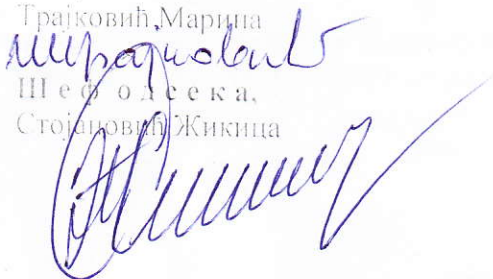 Трајковић Марина
Шеф одсека,
Стојановић Жикица